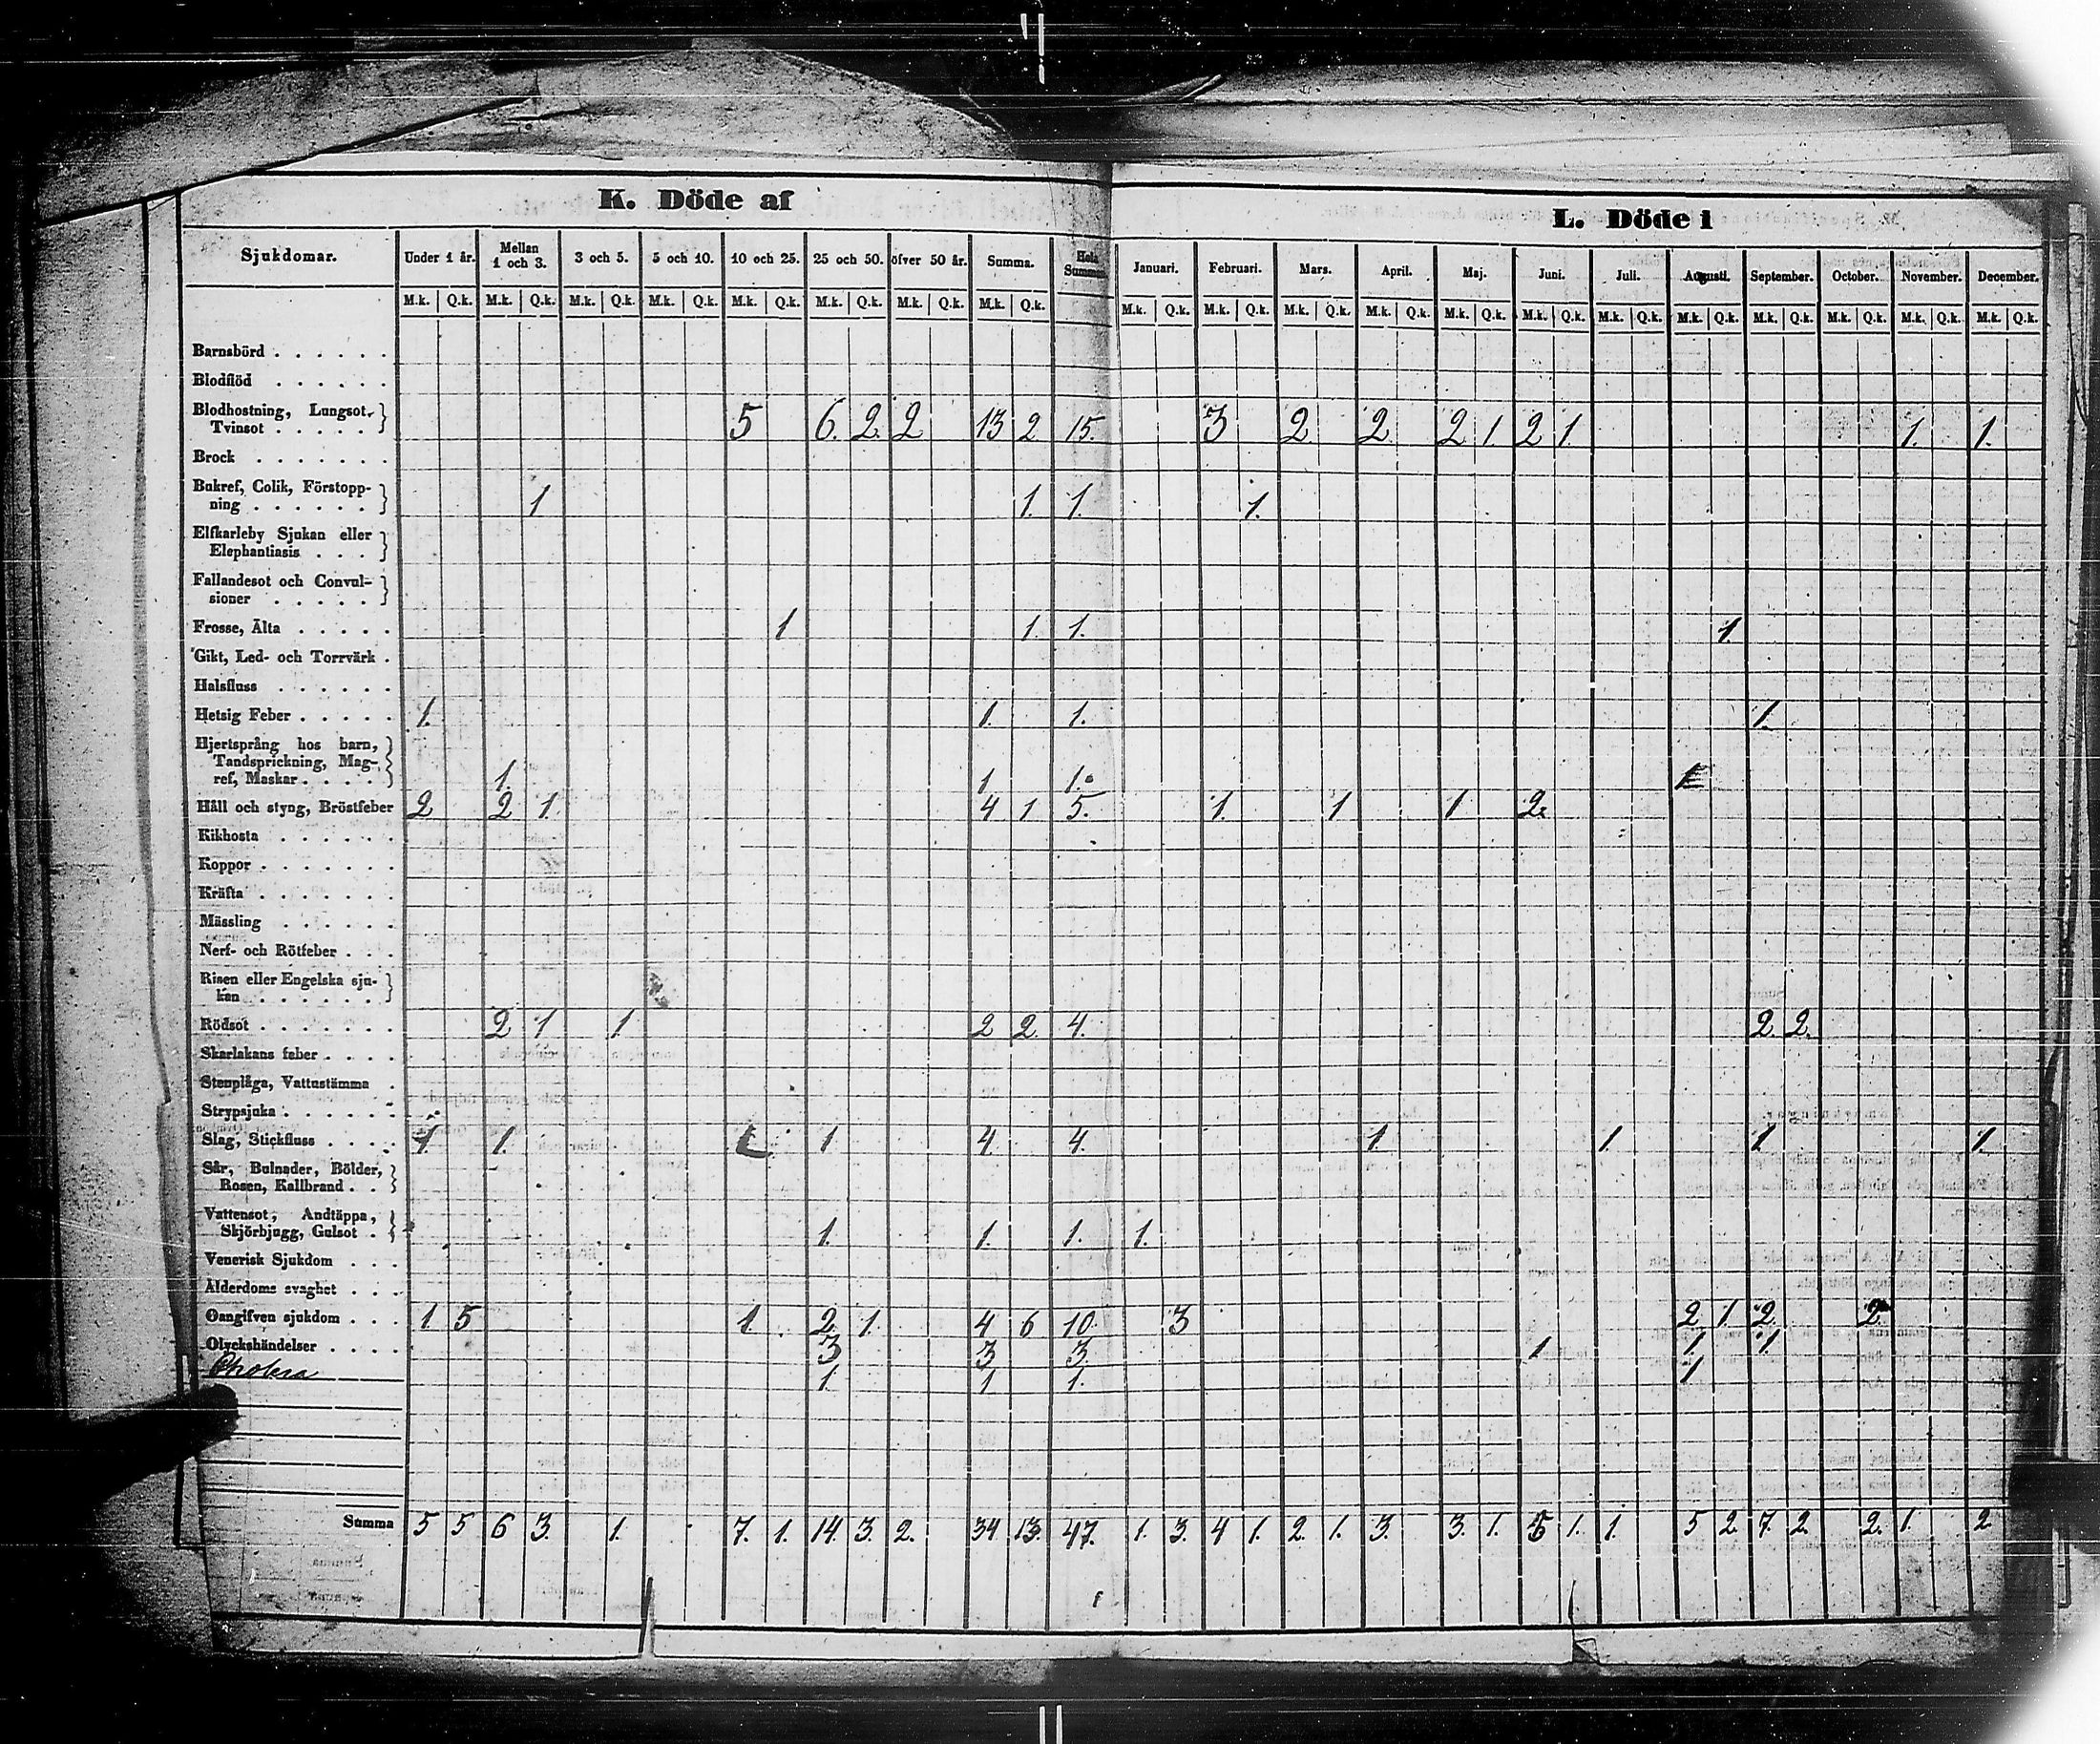 K. Döde af
L. Döde i
Sjukdomar. Under 1 år. Mellan 1 och 3. 3 och 5. 5 och 10. 10 och 25. 25 och 50. öfver 50 år. Summa. Hela Summan Januari. Februari. Mars. April. Maj. Juni. Juli. Augusti. September. October. November. December.
M.k. Q.k. M.k. Q.k. M.k. Q.k. M.k. Q.k. M.k. Q.k. M.k. Q.k. M.k. Q.k. M.k. Q.k. M.k. Q.k. M.k. Q.k. M.k. Q.k. M.k. Q.k. M.k. Q.k. M.k. Q.k. M.k. Q.k. M.k. Q.k. M.k. Q.k. M.k. Q.k. M.k. Q.k. M.k. Q.k.
Barnsbörd . . . . . .
Blodflöd . . . . . .
Blodhostning, Lungsot,
Tvinsot . . . . . 5 6. 2. 2 13 2 15. 3 2 2 2 1 2 1. 1. 1.
Brock . . . . . . .
Bukref, Colik, Förstopp-
ning . . . . . . 1 1. 1. 1.
Elfkarleby Sjukan eller
Elephantiasis . . .
Fallandesot och Convul-
sioner . . . . .
Frosse, Älta . . . . . 1 1. 1. 1.
Gikt, Led- och Torrvärk .
Halsfluss . . . . . .
Hetsig Feber . . . . . 1. 1. 1. 1.
Hjertsprång hos barn,
Tandsprickning, Mag-
ref, Maskar . . . . 1. 1 1. 1
Håll och styng, Bröstfeber 2 2 1. 4 1 5. 1. 1 1 2.
Kikhosta . . . . . .
Koppor . . . . . . .
Kräfta . . . . . . .
Mässling . . . . . .
Nerf- och Rötfeber . . .
Risen eller Engelska sju-
kan . . . . . .
Rödsot . . . . . . . 2 1 1. 2 2 4. 2 2.
Skarlakans feber . . . .
Stenplåga, Vattustämma .
Strypsjuka . . . . . .
Slag, Stickfluss . . . . 1 1. 1 1 4. 4. 1. 1. 1 1.
Sår, Bulnader, Bölder,
Rosen, Kallbrand . .
Vattensot, Andtäppa,
Skjörbjugg, Gulsot . 1. 1. 1. 1.
Venerisk Sjukdom . . .
Ålderdoms svaghet . . .
Oangifven sjukdom . . . 1 5 1. 2 1. 4 6 10. 3 2 1 2 2
Olyckshändelser . . . . 3 3 3. 1 1 1
Cholera 1. 1 1. 1
Summa 5 5 6 3. 1. 7. 1. 14. 3. 2. 34 13. 47. 1. 3. 4 1. 2 1. 3. 3. 1. 5 1. 1. 5 2 7. 2. 2. 1. 2